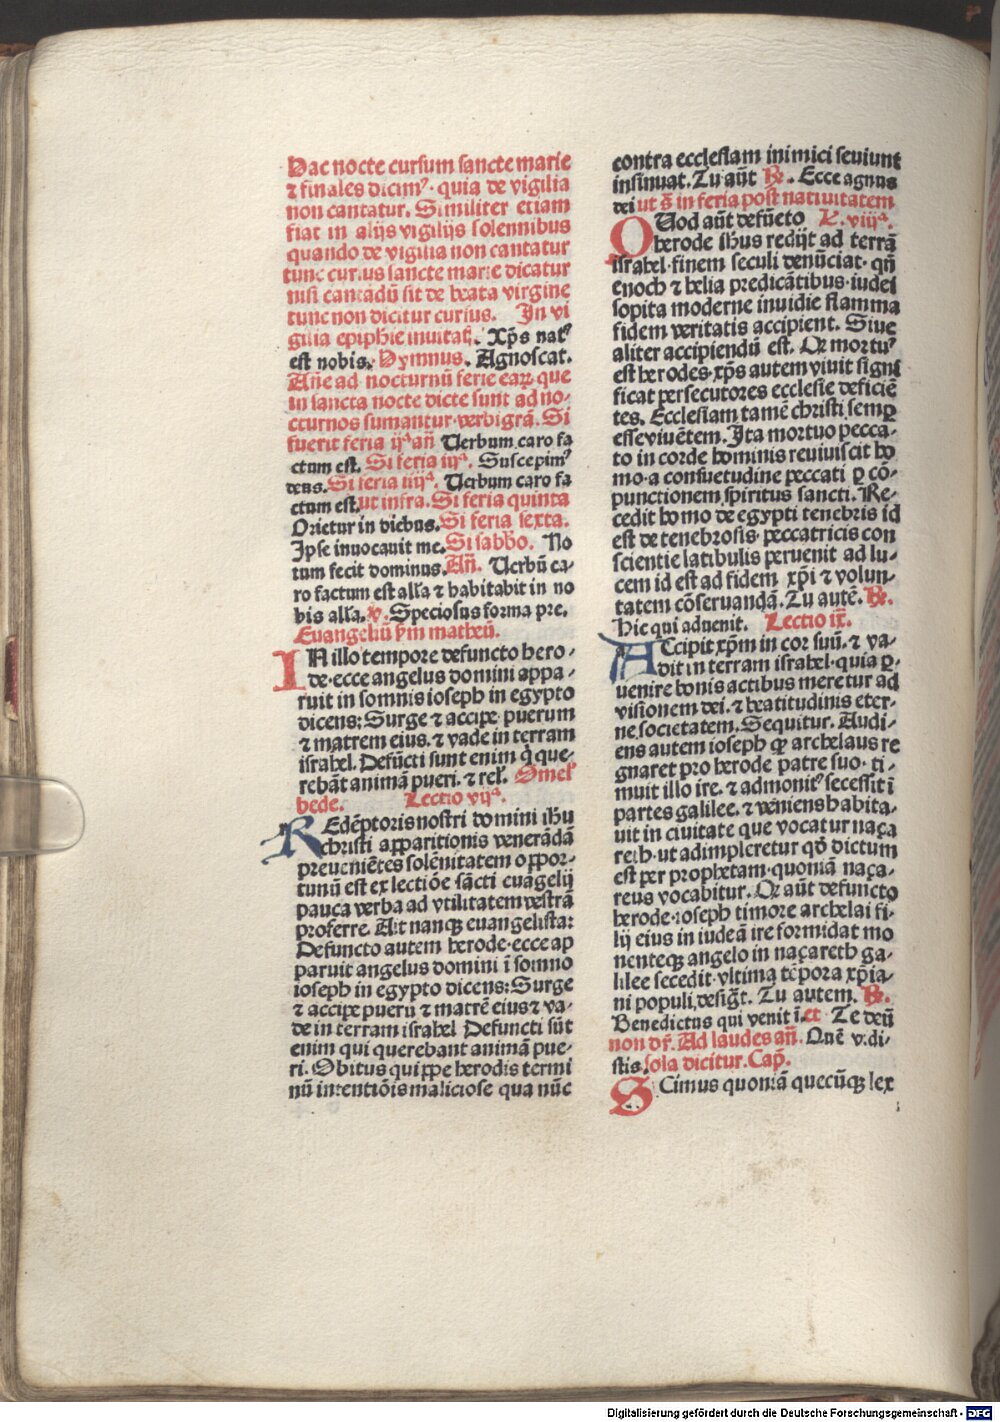 Hac nocte cursum sancte marie
⁊ finales dicimꝰ · quia de vigilia
non cantatur. Similiter etiam
fiat in alijs vigilijs solennibus
quando de vigilia non cantatur
tunc cursus sancte marie dicatur
nisi cantādū sit de beata virgine
tunc non dicitur cursus. In vi
gilia epiphie inuitat̄. Xp̄s natꝰ
est nobis. Hymnus. Agnoscat.
Añe ad nocturnū ferie earꝝ que
in sancta nocte dicte sunt ad no⸗
cturnos sumantur · verbi grā. Si
fuerit feria ijᵃ añ Verbum caro fa
ctum est. Si feria iijᵃ. Suscepimꝰ
deus. Si feria iiijᵃ. Verbum caro fa
ctum est. ut infra. Si feria quinta
Orietur in diebus. Si feria sexta.
Ipse inuocauit me. Si sabbo. No
tum fecit dominus. Añ. Verbū ca⸗
ro factum est alľa ⁊ habitabit in no
bis alľa. ꝟ. Speciosus forma pre.
Euangeliū ẜm matheū.
IN illo tempore defuncto hero⸗
de · ecce angelus domini appa⸗
ruit in somnis ioseph in egypto
dicens: Surge ⁊ accipe puerum
⁊ matrem eius. ⁊ vade in terram
israhel. Defūcti sunt enim q̇ que⸗
rebāt animā pueri. ⁊ reľ. Omeľ
bede. Lectio vijᵃ.
REdēptoris nostri domini ihū
christi apparitionis venerādā
preueniētes solēnitatem oppor⸗
tunū est ex lectiōe sācti euāgelij
pauca verba ad vtilitatem vestrā
proferre. Ait nanqꝫ euangelista:
Defuncto autem herode · ecce ap
paruit angelus domini ī somno
ioseph in egypto dicens: Surge
⁊ accipe puerū ⁊ matrē eius ⁊ va⸗
de in terram israhel Defuncti sūt
enim qui querebant animā pue⸗
ri. Obitus quippe herodis termi
nū intentiōis maliciose qua nūc
contra ecclesiam inimici seuiunt
insinuat. Tu aūt ℞. Ecce agnus
dei ut s̄ in feria post natiuitatem
QUod aūt defūcto L. viijᵃ.
herode ihūs redijt ad terrā
israhel · finem seculi denūciat · qn̄
enoch ⁊ helia predicātibus · iudei
sopita moderne inuidie flamma
fidem veritatis accipient. Siue
aliter accipiendū est. Qꝛ mortuꝰ
est herodes · xp̄s autem viuit signi
ficat persecutores ecclesie deficiē
tes. Ecclesiam tamē christi semꝑ
esse viuētem. Ita mortuo pecca⸗
to in corde hominis reuiuiscit ho
mo · a consuetudine peccati ꝑ cō⸗
punctionem spiritus sancti. Re⸗
cedit homo de egypti tenebris id
est de tenebrosis peccatricis con
scientie latibulis peruenit ad lu⸗
cem id est ad fidem xp̄i ⁊ volun⸗
tatem cōseruandā. Tu autē. ℞.
Hic qui aduenit. Lectio ix̄.
ACcipit xp̄m in cor suū. ⁊ va⸗
dit in terram israhel · quia ꝑ⸗
uenire bonis actibus meretur ad
visionem dei. ⁊ beatitudinis eter⸗
ne societatem. Sequitur. Audi⸗
ens autem ioseph ꝙ archelaus re
gnaret pro herode patre suo · ti⸗
muit illo ire. ⁊ admonitꝰ secessit ī
partes galilee. ⁊ veniens habita⸗
uit in ciuitate que vocatur naça
reth · ut adimpleretur qđ dictum
est per prophetam · quoniā naça⸗
reus vocabitur. Qꝛ aūt defuncto
herode · ioseph timore archelai fi⸗
lij eius in iudeā ire formidat mo
nenteqꝫ angelo in naçareth ga⸗
lilee secedit · vltima tēpora xp̄ia⸗
ni populi desigt̄. Tu autem. ℞.
Benedictus qui venit ī. et Te deū
non dr̄. Ad laudes añ. Quē vidi⸗
stis. sola dicitur. Cap̄.
SCimus quoniā quecūqꝫ lex
Digitalisierung gefördert durch die Deutsche Forschungsgemeinschaft - DFG